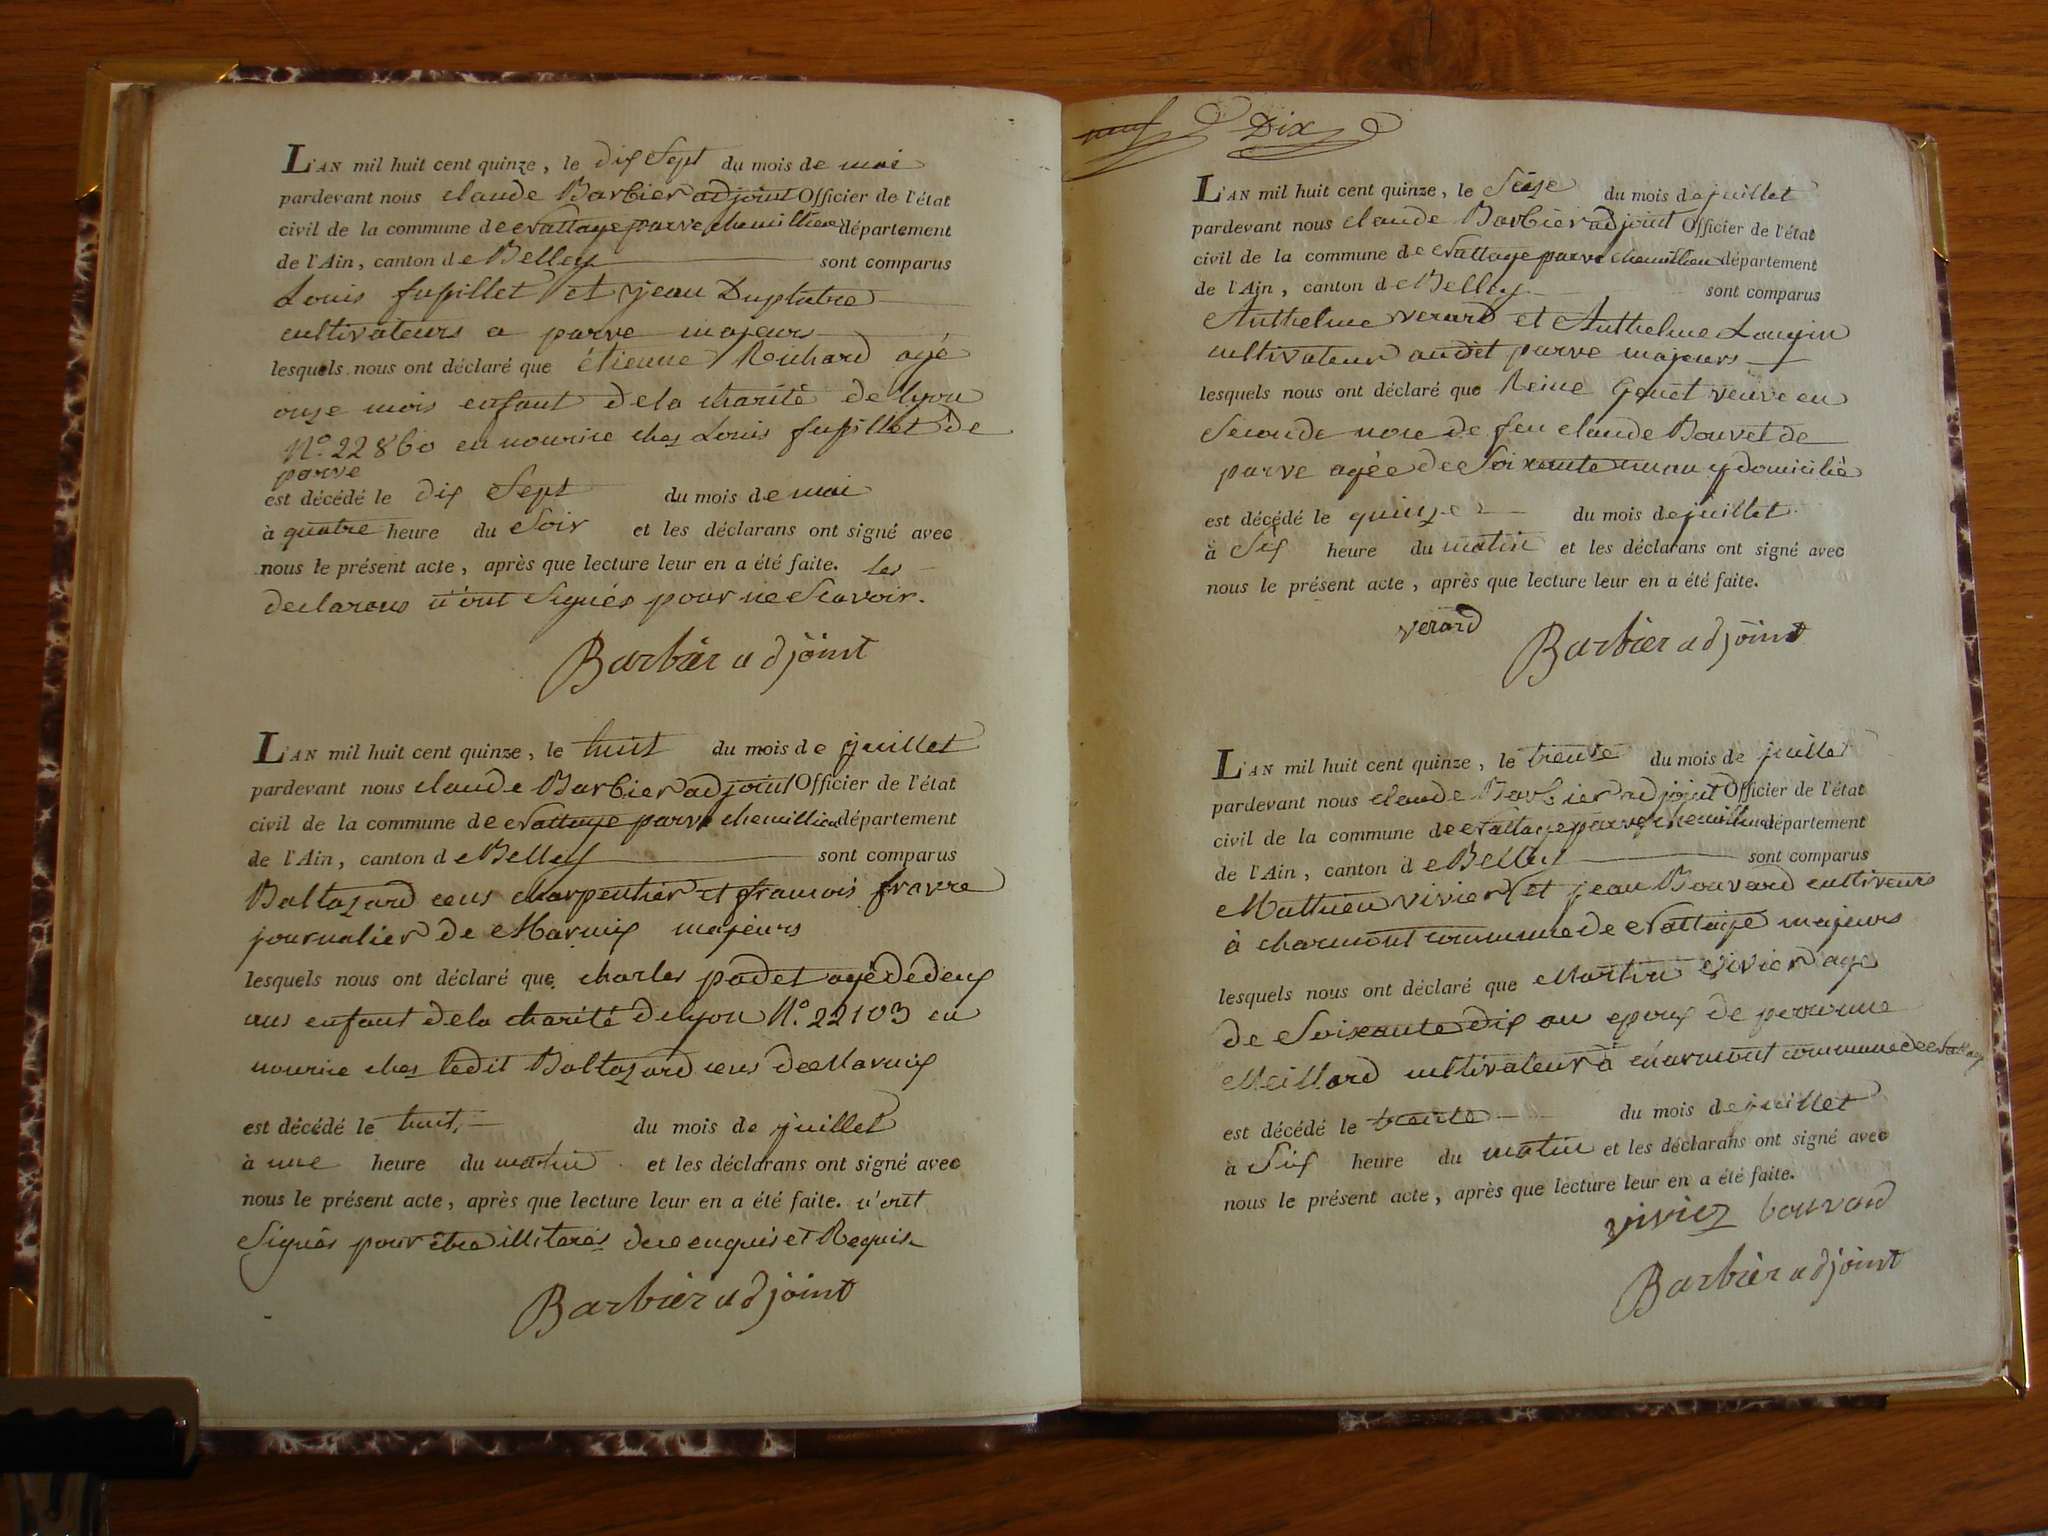 L'AN mil huit cent quinze, le dix Sept du mois de mai
pardevant nous claude Barbier adjoint Officier de l'état
civil de la commune de Nattage parve chemillieu département
de l'Ain, canton de Belley sont comparus
Louis fusillet et jean Duplatre
cultivateurs a parve majeurs
lesquels nous ont déclaré que étienne Richard agé
onze mois enfant de la charité de lyon
N.o 22860 en nourice chez Louis fusillet de
parve
est décédé le dix Sept du mois de mai
à quatre heure du Soir et les déclarans ont signé avec
nous le présent acte, après que lecture leur en a été faite. les
declarans n'ont Signés pour ne Scavoir.
Barbier adjoint
L'AN mil huit cent quinze, le huit du mois de juillet
pardevant nous claude Barbier adjoint Officier de l'état
civil de la commune de Nattage parve chemillieu département
de l'Ain, canton de Belley sont comparus
Baltazard charpentier et francois fravre
journalier de Marnix majeurs
lesquels nous ont déclaré que charles padet agé de deux
ans enfant de la charité de lyon N.o 22103 en
nourice chez ledit Baltazard de Marnix
est décédé le huit du mois de juillet
à une heure du matin et les déclarans ont signé avec
nous le présent acte, après que lecture leur en a été faite. n'ont
Signés pour être illiterés de ce enquis et Requis
Barbier adjoint
neuf Dix
L'AN mil huit cent quinze, le Seize du mois de juillet
pardevant nous claude Barbier adjoint Officier de l'état
civil de la commune de Nattage parve chemillieu département
de l'Ain, canton de Belley sont comparus
Anthelme verard et Anthelme Laugin
cultivateur audit parve majeurs
lesquels nous ont déclaré que Reine Genet veuve en
Seconde noce de feu claude Bouvet de
parve agée de Soixante un an y domicilié
est décédé le quinze du mois de juillet
à Six heure du matin et les déclarans ont signé avec
nous le présent acte, après que lecture leur en a été faite.
verard
Barbier adjoint
L'AN mil huit cent quinze, le trente du mois de juillet
pardevant nous claude Barbier adjoint Officier de l'état
civil de la commune de Nattage parve chemillieu département
de l'Ain, canton de Belley sont comparus
Mathieu vivier et jean Bouvard cultiveurs
à charmont commune de Nattage majeurs
lesquels nous ont déclaré que Martin vivier agé
de Soixante dix an epoux de perrinne
Meillard cultivateur à charmont commune de Nattage
est décédé le trente du mois de juillet
à Six heure du matin et les déclarans ont signé avec
nous le présent acte, après que lecture leur en a été faite.
vivier bouvard
Barbier adjoint